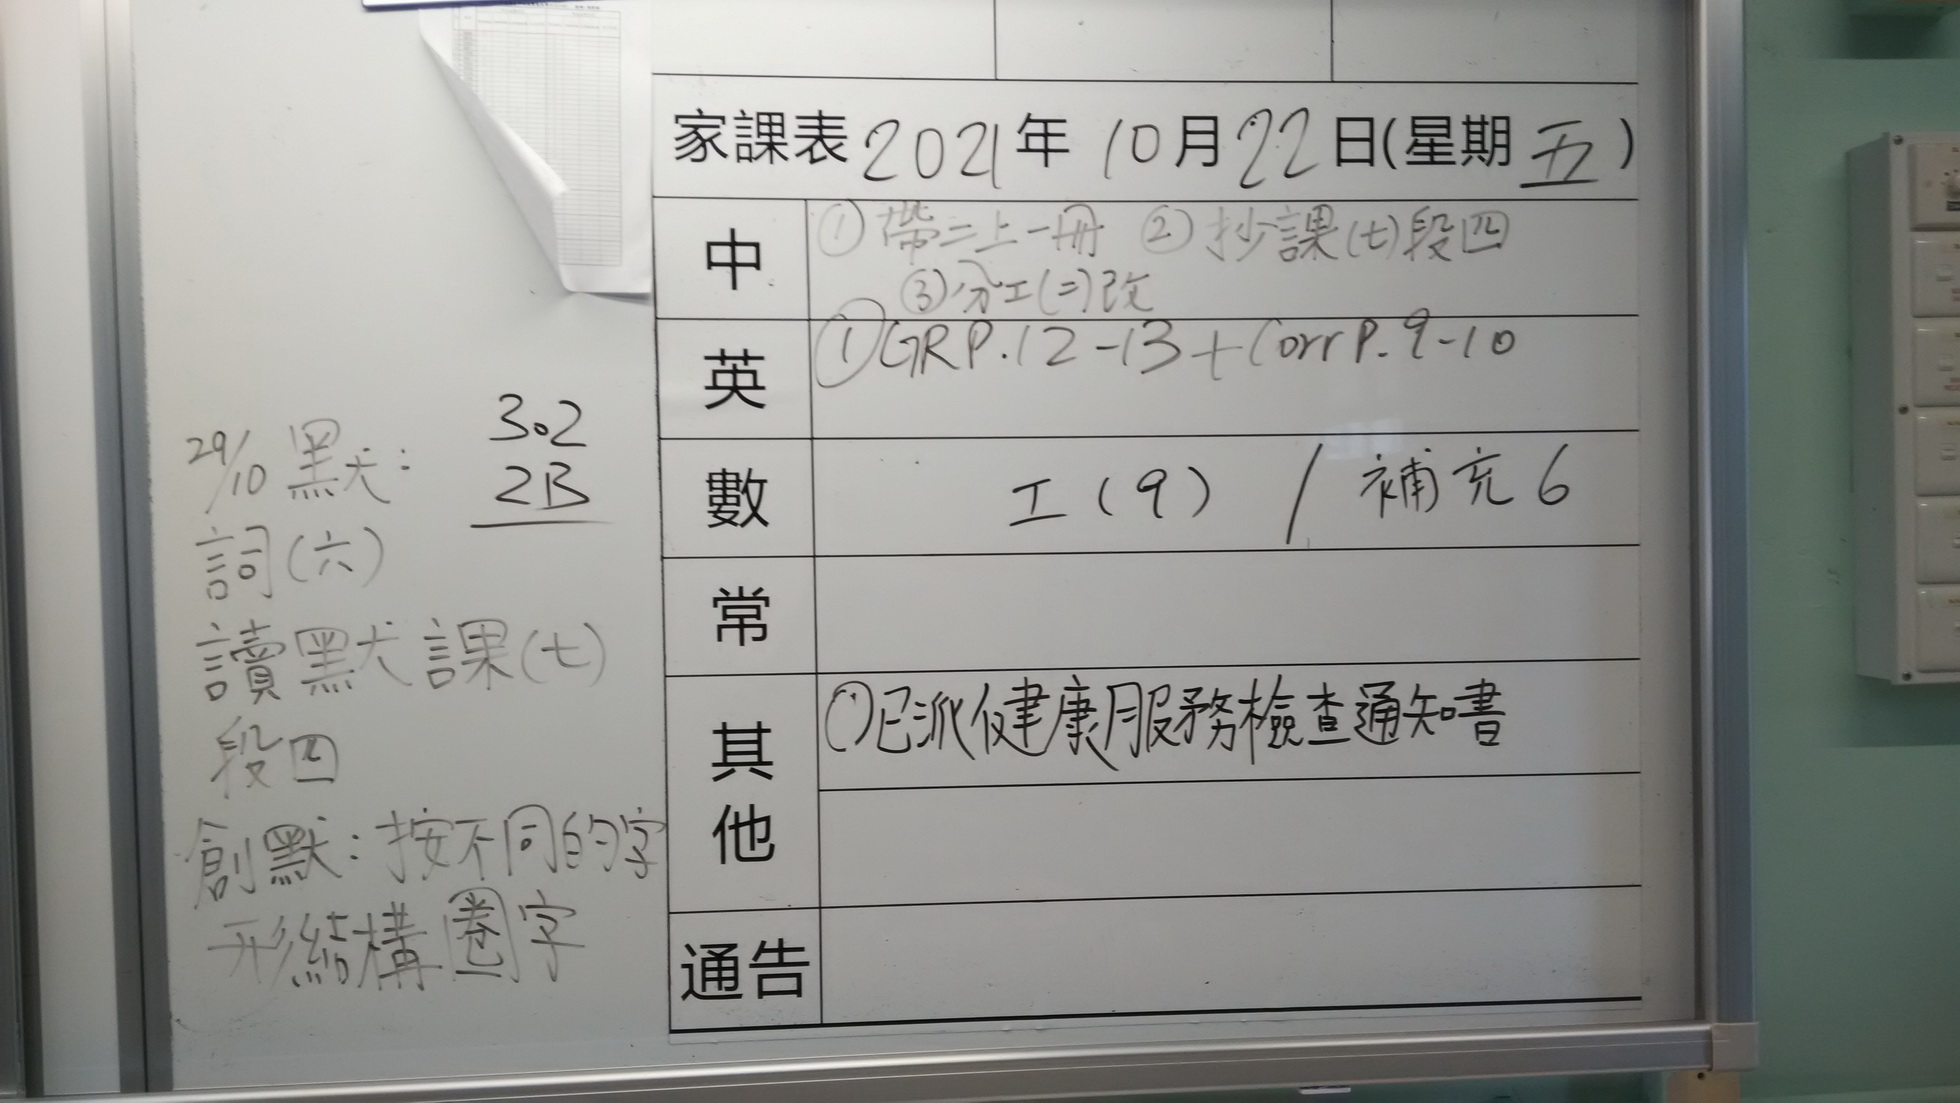 家課表 2021年 10月22日(星期五)
中
① 帶二上一冊 ② 抄課(七)段四
③分工(二)改
英
①GRP.12-13+Corr P.9-10
數
工(9) / 補充6
常
其他
①已派健康服務檢查通知書
通告
3.2
2B
29/10 默:
詞(六)
讀默課(七)
段四
創默:按不同的字
形結構圈字